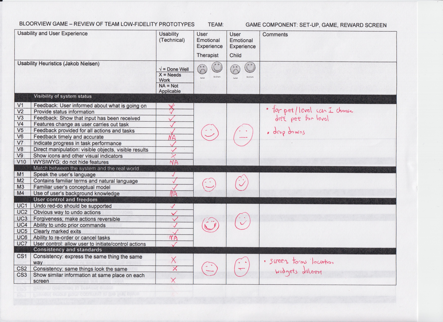 BLOORVIEW GAME – REVIEW OF TEAM LOW-FIDELITY PROTOTYPES TEAM: GAME COMPONENT: SET-UP, GAME, REWARD SCREEN
Usability and User Experience
Usability (Technical)
User Emotional Experience
Therapist
User Emotional Experience
Child
Comments
Usability Heuristics (Jakob Nielsen)
√ = Done Well
X = Needs Work
NA = Not Applicable
Visibility of system status
V1 Feedback: User informed about what is going on X
V2 Provide status information
V3 Feedback: Show that input has been received
V4 Features change as user carries out task
V5 Feedback provided for all actions and tasks
V6 Feedback timely and accurate NA
V7 Indicate progress in task performance
V8 Direct manipulation: visible objects, visible results
V9 Show icons and other visual indicators
V10 WYSIWYG: do not hide features NA
drop downs
Match between system and the real world
M1 Speak the user's language
M2 Contains familiar terms and natural language
M3 Familiar user's conceptual model
M4 Use of user's background knowledge NA
User control and freedom
UC1 Undo red-do should be supported
UC2 Obvious way to undo actions
UC3 Forgiveness; make actions reversible
UC4 Ability to undo prior commands
UC5 Clearly marked exits
UC6 Ability to re-order or cancel tasks NA
UC7 User control: allow user to initiate/control actions
Consistency and standards
CS1 Consistency: express the same thing the same way X
CS2 Consistency: same things look the same X
CS3 Show similar information at same place on each screen X
widgets